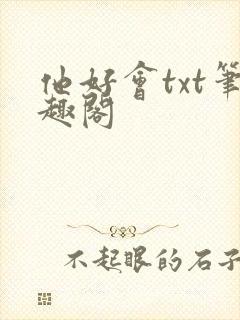 他好會txt筆
趣閣
不起眼的石子